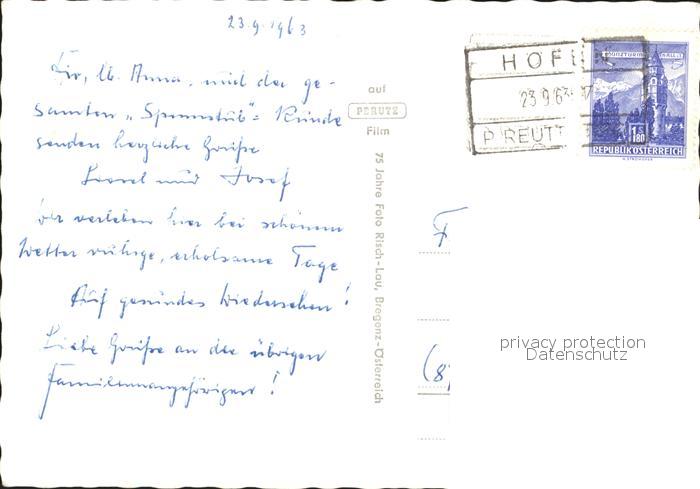 23.9.1963
Dir, lb. Anna, und der ge-
samten „Spinnstub"= Runde
senden herzliche Grüße
und Josef
Wir verleben hier bei schönem
Wetter ruhige, erholsame Tage
Auf gesundes Wiedersehen!
Liebe Grüße an die übrigen
Familienangehörigen!
auf
PERUTZ
Film
75 Jahre Foto Risch-Lau, Bregenz-Österreich
HÖFEN
23.9.63
P. REUTTE
MÜNZTURM HALL I. T.
S 1.80
REPUBLIK ÖSTERREICH
F
(8
privacy protection
Datenschutz